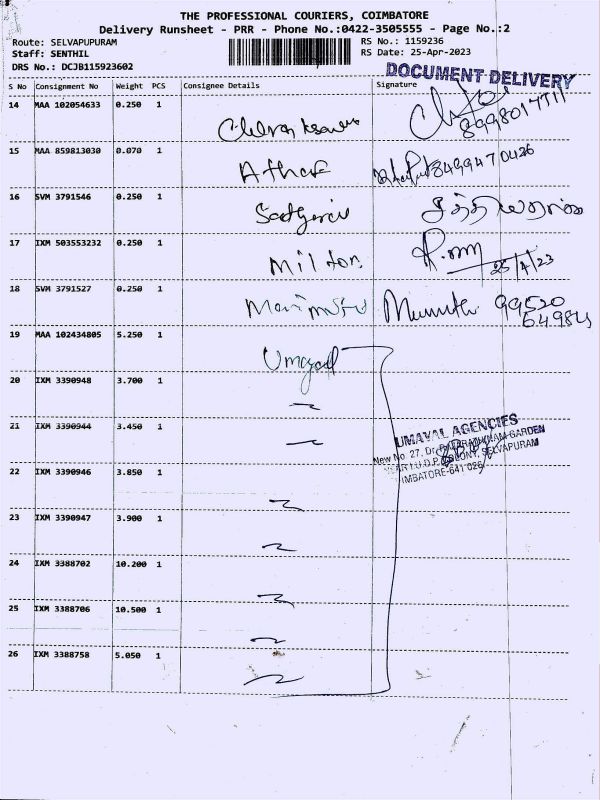 THE PROFESSIONAL COURIERS, COIMBATORE
Delivery Runsheet - PRR - Phone No.:0422-3505555 - Page No.:2
Route: SELVAPUPURAM RS No.: 1159236
Staff: SENTHIL RS Date: 25-Apr-2023
DRS No.: DCJB115923602
DOCUMENT DELIVERY
S No Consignment No Weight PCS Consignee Details Signature
14 MAA 102054633 0.250 1
8998017711
15 MAA 859813030 0.070 1
8499470426
16 SVM 3791546 0.250 1
17 IXM 503553232 0.250 1
Milton 25/4/23
18 SVM 3791527 0.250 1
99520
64984
19 MAA 102434805 5.250 1
Umayal
20 IXM 3390948 3.700 1
21 IXM 3390944 3.450 1
UMAYAL AGENCIES
New No. 27, Dr. GARDEN
COLONY, SELVAPURAM
IMBATORE-641 026
22 IXM 3390946 3.850 1
23 IXM 3390947 3.900 1
24 IXM 3388702 10.200 1
25 IXM 3388706 10.500 1
26 IXM 3388758 5.050 1